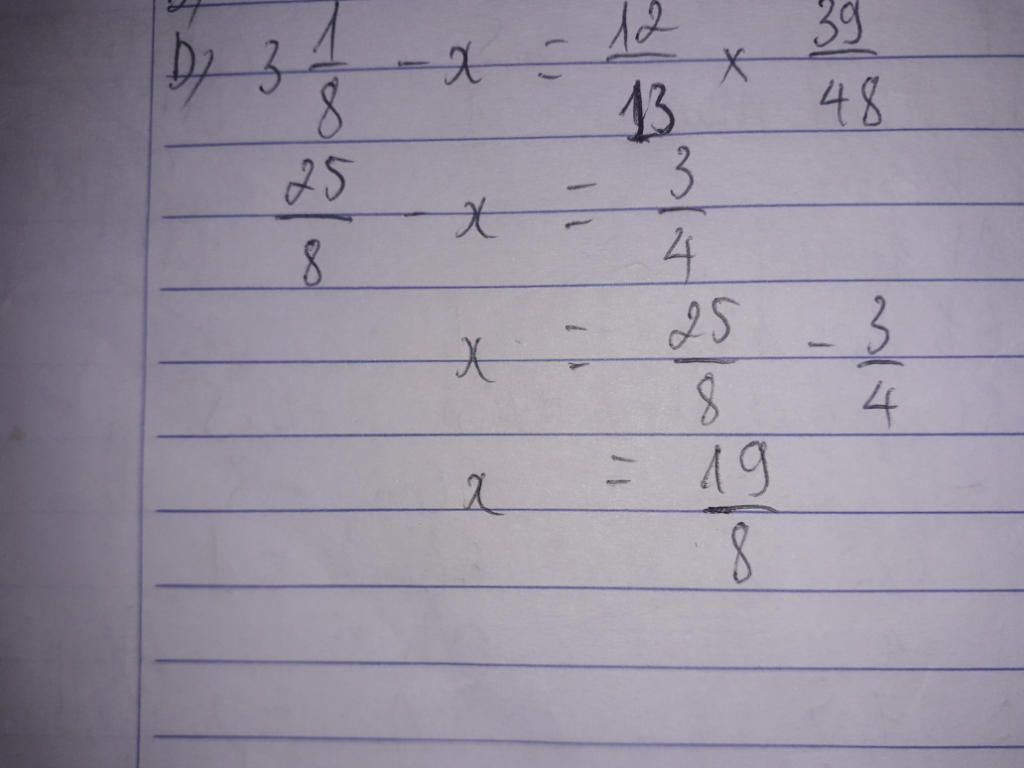 D) 3 1/8 - x = 12/13 × 39/48
25/8 - x = 3/4
x = 25/8 - 3/4
x = 19/8